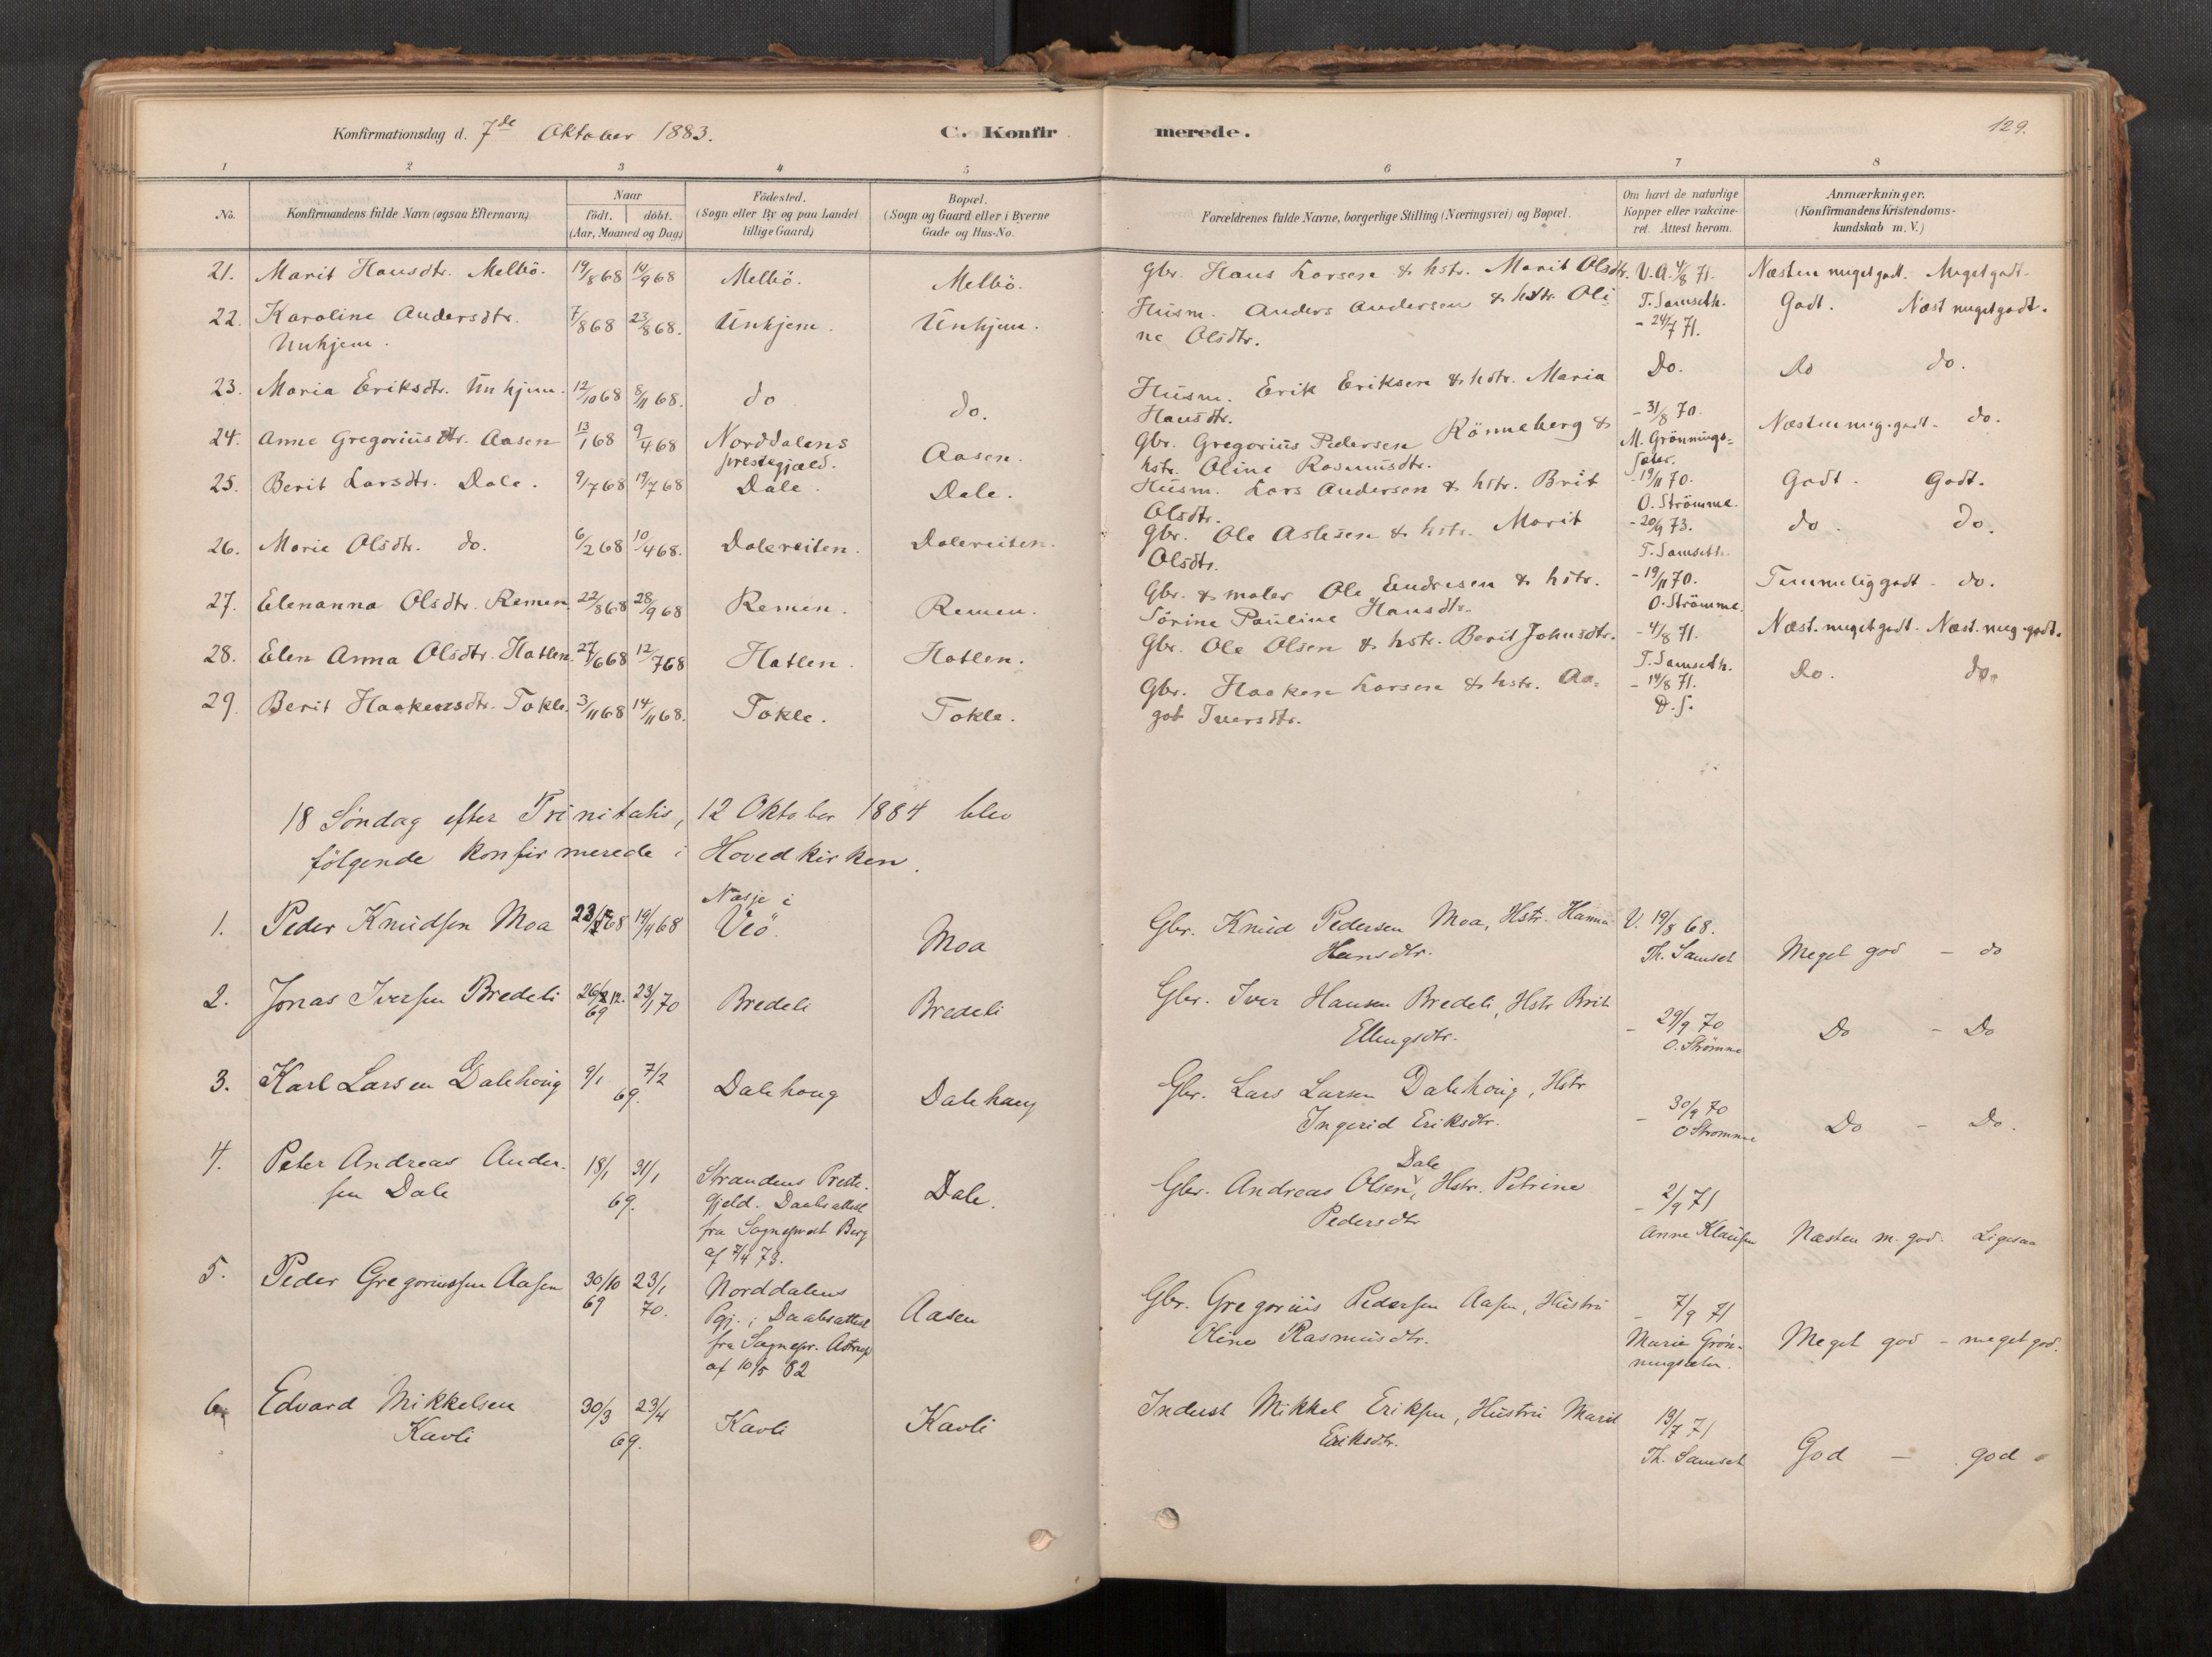 Konfirmationsdag d. 7de Oktober 1883. C. Konfirmerede. 129.
1 2 3 4 5 6 7 8
No. Konfirmandens fulde Navn (ogsaa Efternavn) Naar födt. döbt. (Aar, Maaned og Dag) Födested. (Sogn eller By og paa Landet tillige Gaard) Bopæl. (Sogn og Gaard eller i Byerne Gade og Hus-No. Forældrenes fulde Navne, borgerlige Stilling (Næringsvei) og Bopæl. Om havt de naturlige Kopper eller vakcineret. Attest herom. Anmærkninger. (Konfirmandens Kristendomskundskab m. V.)
21. Marit Hansdtr. Melbö. 19/8 68 14/9 68 Melbö. Melbö. Gbr. Hans Larsen & hstr. Marit Olsdtr. V.A. 4/8 71. T. Samseth. Næsten meget godt. Meget godt.
22. Karoline Andersdtr. Unhjem. 7/8 68 23/8 68. Unhjem. Unhjem. Husm. Anders Andersen & hstr. Oline Olsdtr. - 24/7 71. Do. Godt. Næst meget godt.
23. Maria Eriksdtr. Unhjem. 12/10 68 8/11 68. do do. Husm. Erik Eriksen & hstr. Maria Hansdtr. - 31/8 70. Do do.
24. Anne Gregoriusdtr. Aasen 13/1 68 9/4 68 Norddalens prestegjæld. Aasen. Gbr. Gregorius Pedersen Rönneberg & hstr. Oline Rasmusdtr. M. Grönningsæter. Næsten meg. godt. do.
25. Berit Larsdtr. Dale. 9/7 68 19/7 68 Dale. Dale. Husm. Lars Andersen & hstr. Brit Olsdtr. - 19/11 70. O. Strömme. Godt. Godt.
26. Marie Olsdtr. do. 6/2 68 10/4 68. Dalereiten. Dalereiten. Gbr. Ole Aslesen & hstr. Marit Olsdtr. - 20/9 73. T. Samseth. do. do.
27. Elenanna Olsdtr. Remen 22/8 68 28/9 68 Remen. Remen. Gbr. & maler Ole Endresen & hstr. Sörine Pauline Hansdtr. - 19/11 70. O. Strömme. Temmelig godt - do.
28. Elen Anna Olsdtr. Hatlen. 27/6 68 12/7 68 Hatlen. Hatlen. Gbr. Ole Olsen & hstr. Berit Johnsdtr. - 4/8 71. T. Samseth. Næst. meget godt. Næst. meg. godt.
29. Berit Haakensdtr. Tokle. 3/11 68 14/11 68. Tokle. Tokle. Gbr. Haaken Larsen & hstr. Aagot Iversdtr. - 14/8 71. D. s. Do. do.
18 Söndag efter Trinitatis, 12 Oktober 1884 blev
fölgende konfirmerede i Hovedkirken.
1. Peder Knudsen Moa 68 19/4 68 Nasje i Veö. Moa Gbr. Knud Pedersen Moa, Hstr. Hanna Hansdtr. V. 19/8 68. Th. Samset Meget god - do
2. Jonas Iversen Bredeli 26/12. 69 23/1 70 Bredeli Bredeli Gbr. Iver Hansen Bredeli, Hstr Brit Ellingsdtr. - 29/9 70 O. Strömme Do - Do
3. Karl Larsen Dalehoug 9/1 7/2 69. Dalehoug Dalehaug Gbr. Lars Larsen Dalehoug, Hstr Ingerid Eriksdtr. - 30/9 70 O Strömme Do - Do.
4. Peter Andreas Andersen Dale 18/1 31/1 69. Strandens Prestegjeld. Daabsattest fra Sogneprest Berg af 7/4 73. Dale. Gbr. Andreas Olsen Dale, Hstr. Petrine Pedersdtr - 2/9 71 Anne Klausen Næsten m. god. Ligesaa
5. Peder Gregoriussen Aasen 30/10 69 23/1 70. Norddalens Pgj.; Daabsattest fra Sognepr. Astrup af 10/5 82 Aasen Gbr. Gregorius Pedersen Aasen, Hustru Oline Rasmusdtr. - 7/9 71 Marie Grönningsæter. Meget god - meget god.
6. Edvard Mikkelsen Kavli 30/3 23/4 69. Kavli Kavli Inderst Mikkel Eriksen, Hustru Marit Eriksdtr. 19/7 71 Th. Samset God - god